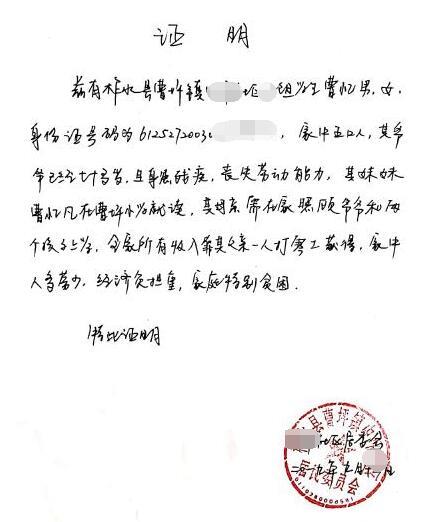 证 明
兹有柞水县曹坪镇 组学生曹忆男,女,
身份证号码为6125272003 ,家中五口人,其爷
爷已经七十多岁,且身患残疾,丧失劳动能力,其妹妹
曹忆凡在曹坪小学就读,其母亲需在家照顾爷爷和两
个孩子上学,全家所有收入靠其父亲一人打零工获得,家中
人多劳少,经济负担重,家庭特别贫困.
特此证明
居委会
县曹坪镇
居民委员会